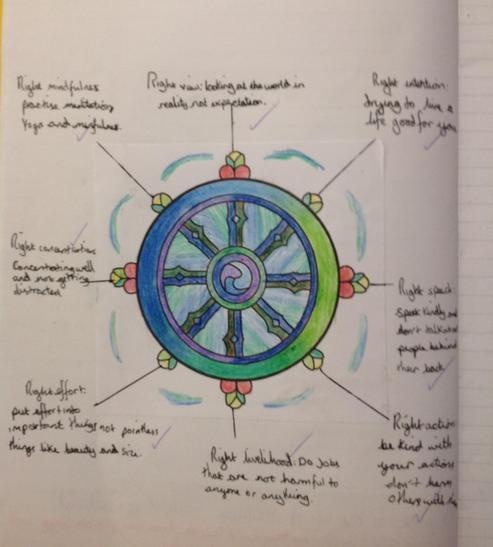 Right view: looking at the world in
reality not expectation.
Right intention:
trying to live a
life good for you
Right speech:
speak kindly and
don't talk
people behind
their back.
Right action
be kind with
your actions
don't harm
others with
Right livelihood: Do jobs
that are not harmful to
anyone or anything.
Right effort:
put effort into
important things not pointless
things like beauty and size.
Right concentration:
Concentrating well
and not getting
distracted
Right mindfulness
practise meditation,
Yoga and mindfulness.